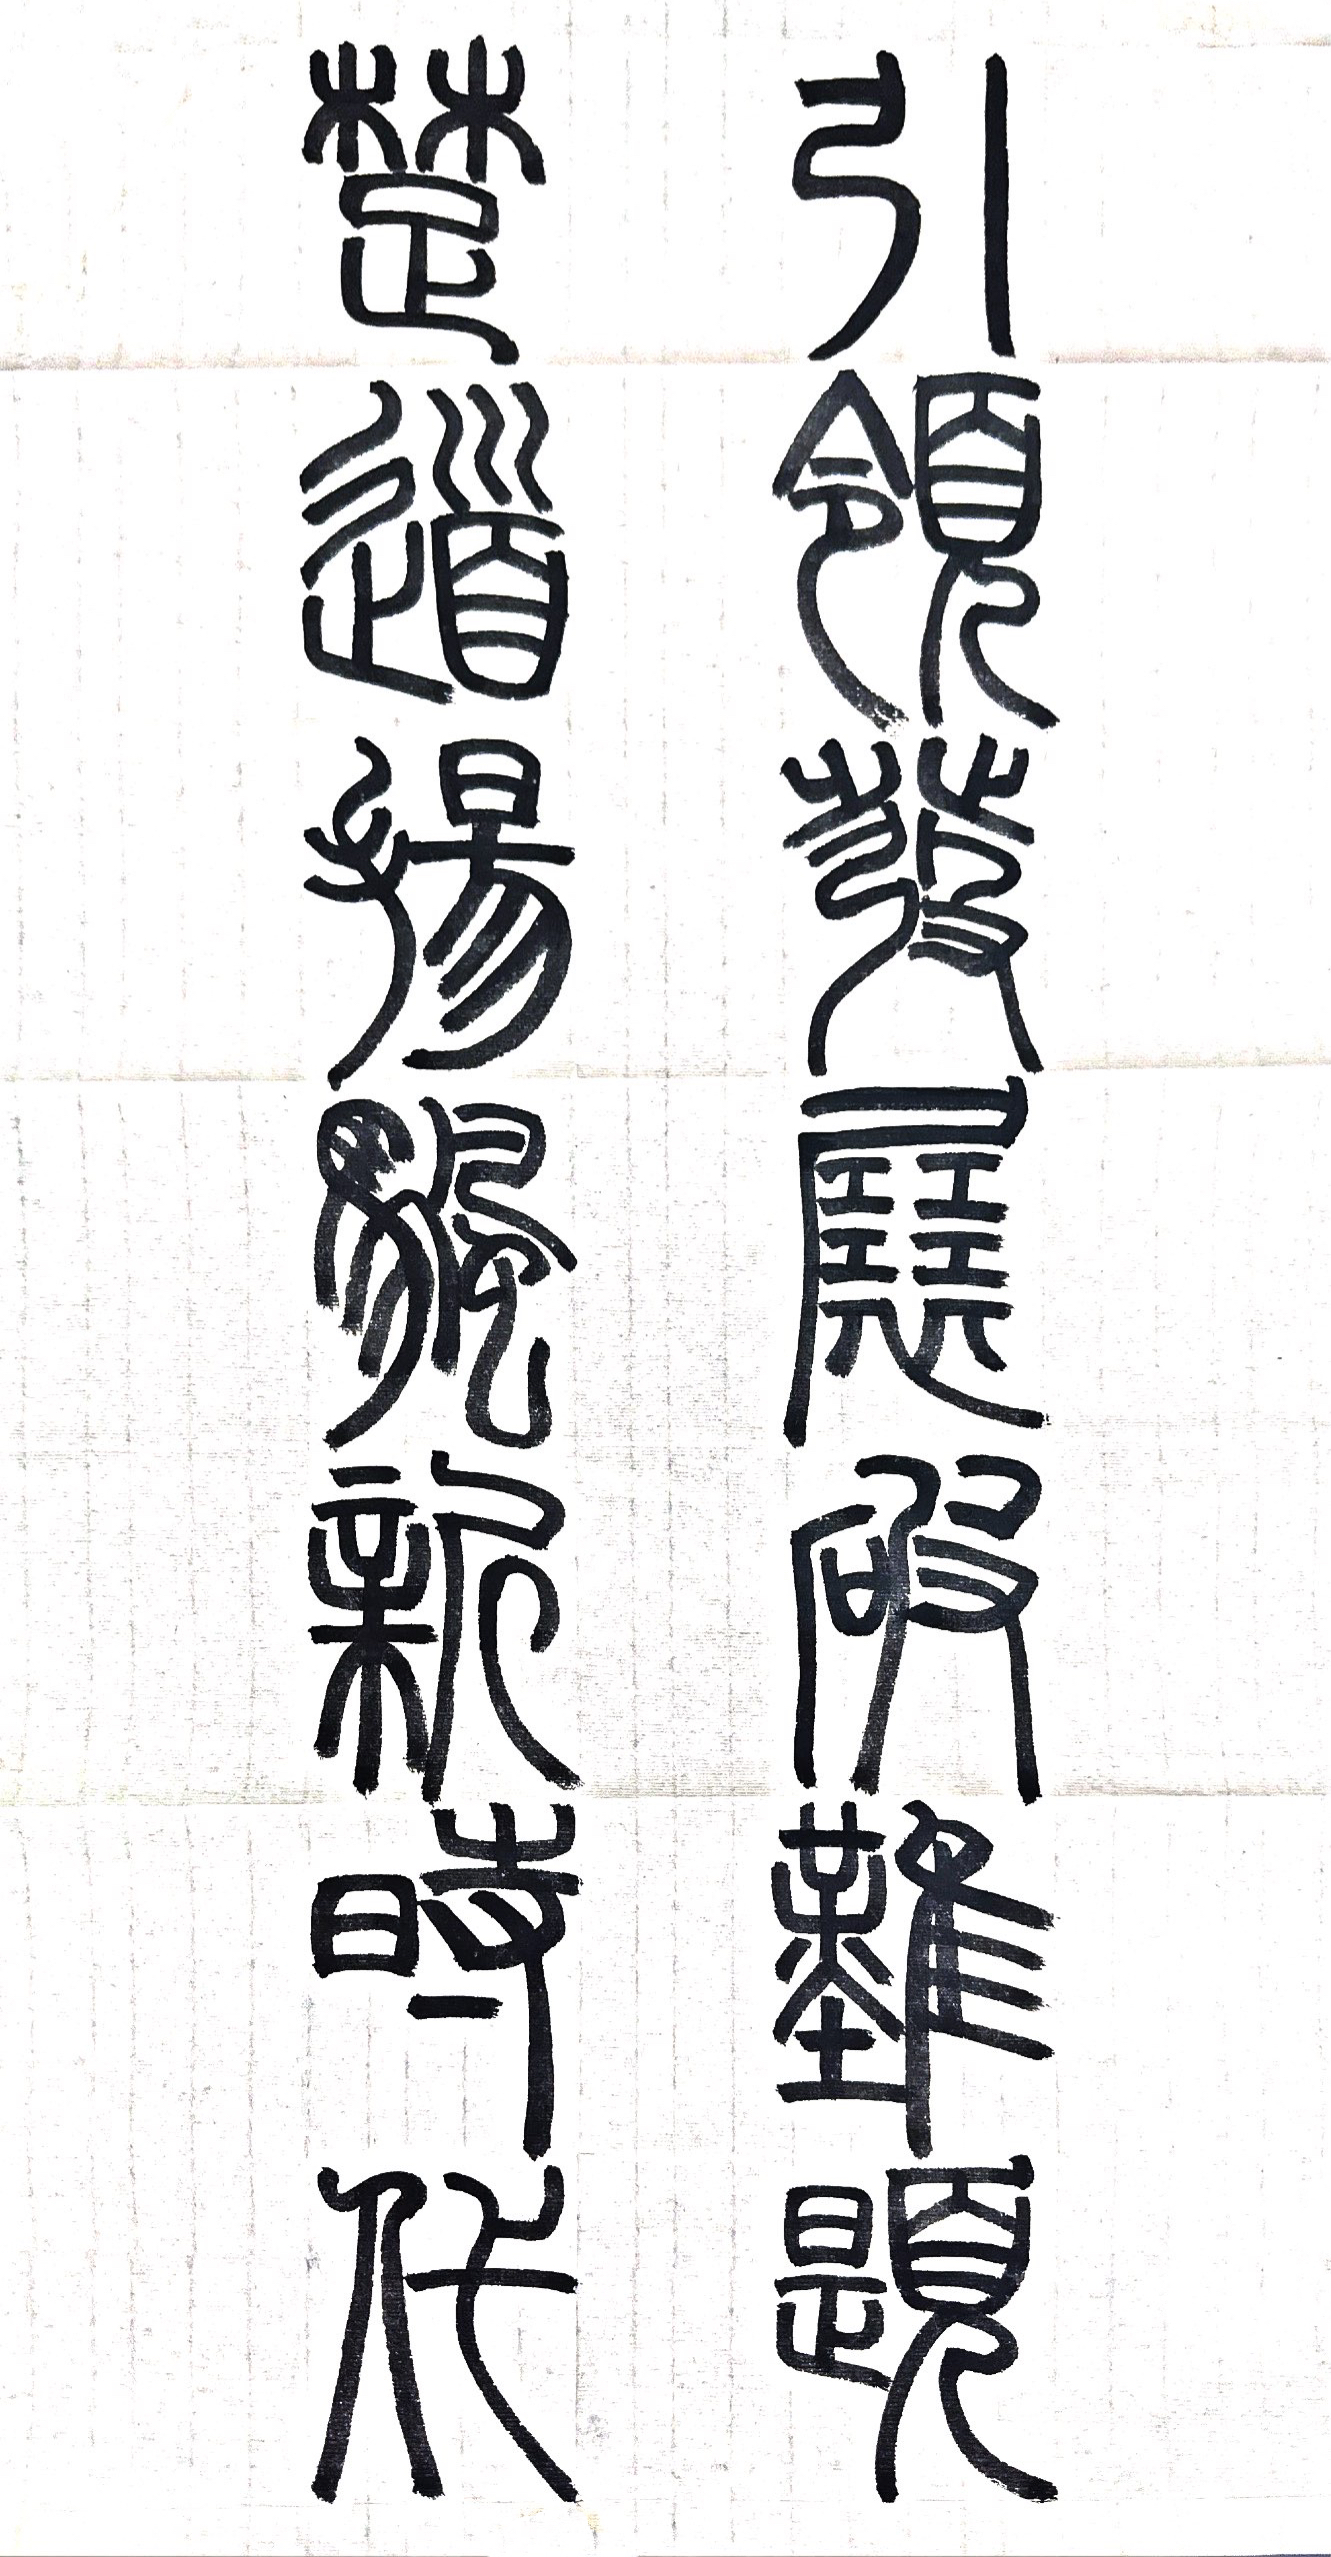 引領發展破難題
楚道揚颿新時代